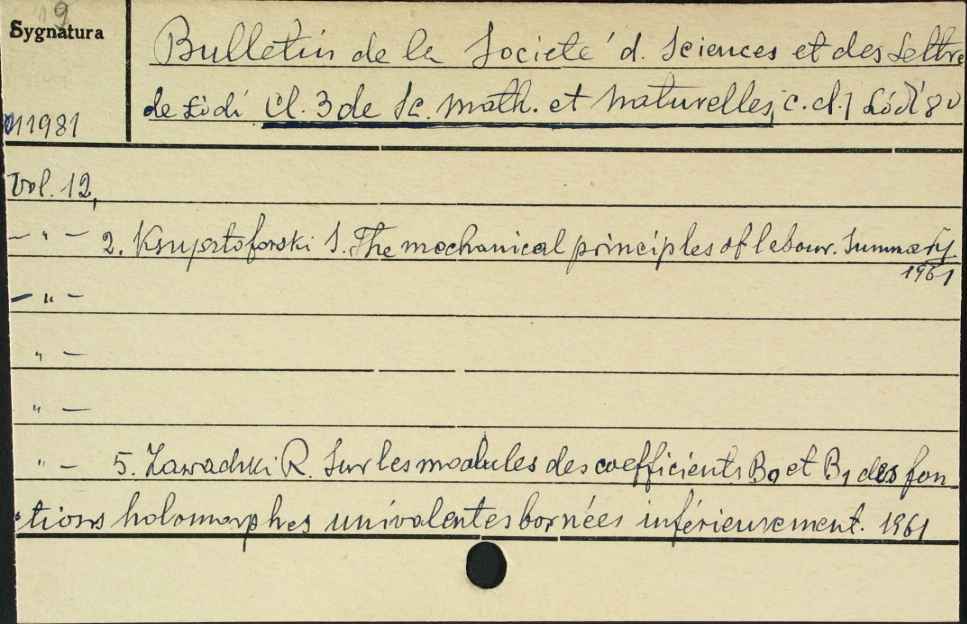 19
Sygnatura
Bulletin de la Société d. Sciences et des Lettre
de Łódź Cl. 3 de Sc. math. et naturelles, c.d.1 Łódź 8°
11981
Vol. 12,
— " — 2. Krzysztoforski S. The mechanical principles of lebour. Summary
1961
— " —
" —
" —
" — 5. Zawadzki R. Sur les modules des coefficients B0 et B1 des fon
tions holomorphes univalentes bornées inférieurement. 1961